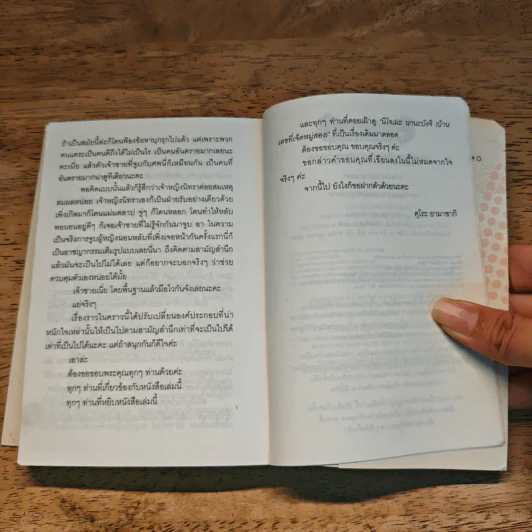 ถ้าเป็นสมัยนี้ล่ะก็โดนฟ้องข้อหาบุกรุกไปแล้ว แต่เพราะพวก
คนแคระเป็นคนดีถึงได้ไม่เป็นไร เป็นคนอันตรายมากเลยนะ
คะเนี่ย แล้วตัวเจ้าชายที่จูบกับศพนี่ก็เหมือนกัน เป็นคนที่
อันตรายมากน่าดูทีเดียวนะคะ
พอคิดแบบนั้นแล้วก็รู้สึกว่าเจ้าหญิงนิทราค่อยสมเหตุ
สมผลหน่อย เจ้าหญิงนิทราเองก็เป็นฝ่ายรับอย่างเดียวด้วย
เพิ่งเกิดมาก็โดนแม่มดสาป จู่ๆ ก็โดนหลอก โดนทำให้หลับ
พอนอนอยู่ดีๆ ก็เจอเจ้าชายที่ไม่รู้จักกันมาจูบ อา ในความ
เป็นจริงการจูบผู้หญิงนอนหลับที่เพิ่งเจอหน้ากันครั้งแรกนี่ก็
เป็นอาชญากรรมเต็มรูปแบบเลยนี่นา ถึงคิดตามสามัญสำนึก
แล้วมันจะเป็นไปไม่ได้เลย แต่ก็อยากจะบอกจริงๆ ว่าช่วย
ควบคุมตัวเองหน่อยได้มั้ย
เจ้าชายเนี่ย โดยพื้นฐานแล้วมือไวกันจังเลยนะคะ
แย่จริงๆ
เรื่องราวในคราวนี้ได้ปรับเปลี่ยนองค์ประกอบที่น่า
หนักใจเหล่านั้นให้เป็นไปตามสามัญสำนึกเท่าที่จะเป็นไปได้
เท่าที่เป็นไปได้นะคะ แต่ถ้าสนุกกันก็ดีใจค่ะ
เอาล่ะ
ต้องขอขอบพระคุณทุกๆ ท่านด้วยค่ะ
ทุกๆ ท่านที่เกี่ยวข้องกับหนังสือเล่มนี้
ทุกๆ ท่านที่หยิบหนังสือเล่มนี้
และทุกๆ ท่านที่คอยเฝ้าดู "นิโจเมะ นานะบังจิ (บ้าน
เลขที่เจ็ดหมู่สอง)" ที่เป็นเรื่องเดิมมาตลอด
ต้องขอขอบคุณ ขอบคุณจริงๆ ค่ะ
ขอกล่าวคำขอบคุณที่เขียนลงในนี้ไม่หมดจากใจ
จริงๆ ค่ะ
จากนี้ไป ยังไงก็ขอฝากตัวด้วยนะคะ
คุโระ ยามาซากิ